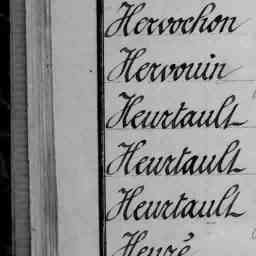 Hervochon
Hervouin
Heurtault
Heurtault
Heurtault